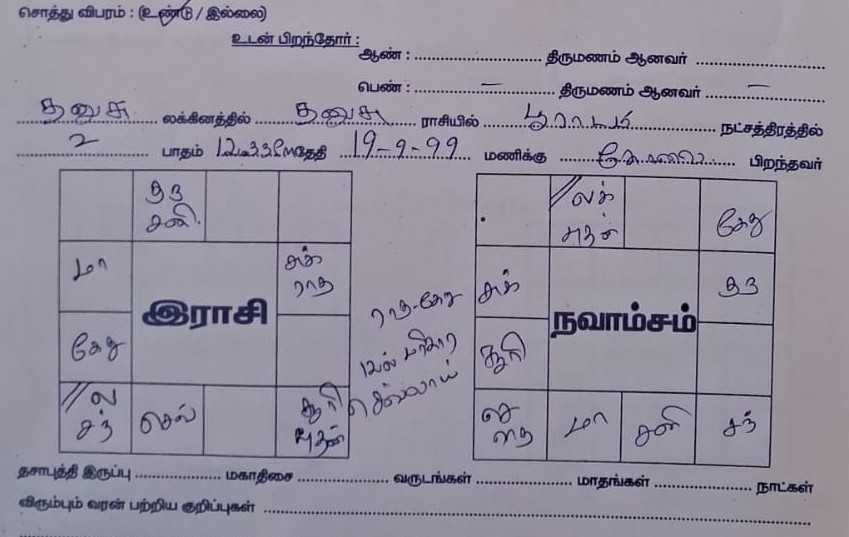 சொத்து விபரம் : (உண்டு / இல்லை)
உடன் பிறந்தோர் :
ஆண் : ........................ திருமணம் ஆனவர் ........................
பெண் : ......... – ......... திருமணம் ஆனவர் ......... – .........
தனுசு லக்கினத்தில் தனுசு ராசியில் பூராடம் நட்சத்திரத்தில்
2 பாதம் தேதி 19-9-99 மணிக்கு பிறந்தவர்
குரு
சனி
மா
சுக்
ராகு
இராசி
கேது
ல
சந்
செவ்
சூரி
புதன்
ராகு-கேது
செவ்வாய்
லக்
புதன்
கேது
சுக்
குரு
நவாம்சம்
சூரி
மா
சனி
சந்
தசாபுத்தி இருப்பு ........................ மகாதிசை ........................ வருடங்கள் ........................ மாதங்கள் ........................ நாட்கள்
விரும்பும் வரன் பற்றிய குறிப்புகள் ........................